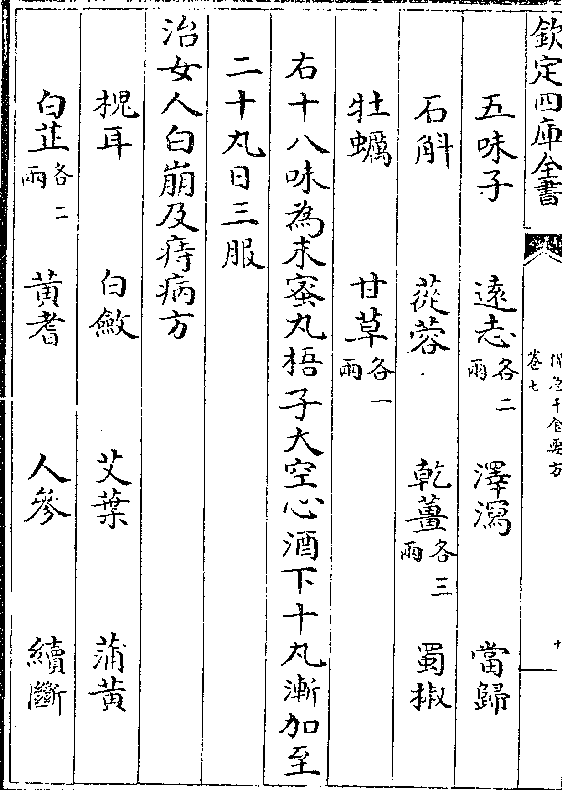 欽定四庫全書
備急千金要方
卷七
五味子 遠志各二兩 澤瀉 當歸
石斛 蓯蓉 乾薑各三兩 蜀椒
牡蠣 甘草各一兩
右十八味為末蜜丸梧子大空心酒下十丸漸加至
二十丸日三服
治女人白崩及痔病方
槐耳 白斂 艾葉 蒲黄
白芷各二兩 黄耆 人參 續斷